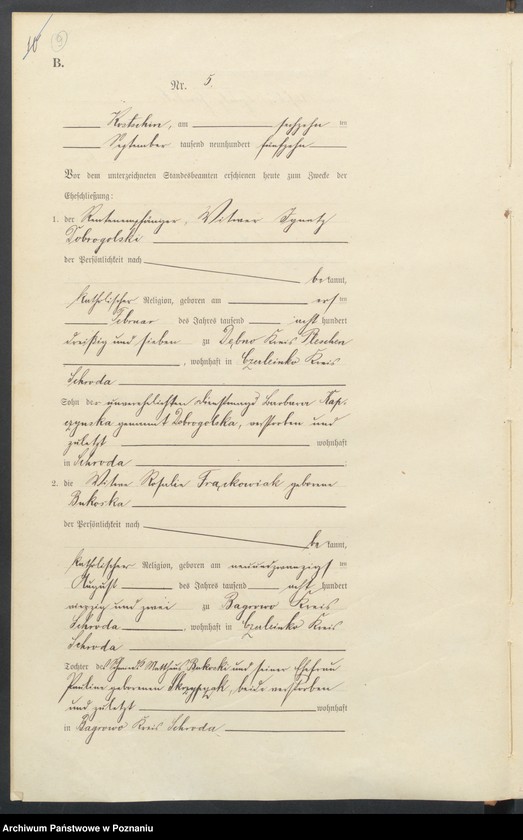 10
6
B.
Nr. 5.
Kostschin, am sechzehn ten
September tausend neunhundert fünfzehn
Vor dem unterzeichneten Standesbeamten erschienen heute zum Zwecke der
Eheschließung:
1. der Rentenempfänger, Witwer Ignatz
Dobrogolski
der Persönlichkeit nach
be kannt,
katholischer Religion, geboren am ersten
Februar des Jahres tausend acht hundert
dreißig und sieben zu Dębno Kreis Pleschen
, wohnhaft in Czerleinko Kreis
Schroda
Sohn der unverehelichten Dienstmagd Barbara Kap-
czynska genannt Dobrogolska, verstorben und
zuletzt wohnhaft
in Schroda
2. die Witwe Rosalie Frąckowiak geborene
Bukoska
der Persönlichkeit nach
be kannt,
katholischer Religion, geboren am neunundzwanzigsten
August des Jahres tausend acht hundert
vierzig und zwei zu Bagrowo Kreis
Schroda, wohnhaft in Czerleinko Kreis
Schroda
Tochter des Schmieds Matthäus Bukoski und seiner Ehefrau
Pauline geborenen Skrzypczak, beide verstorben
und zuletzt wohnhaft
in Bagrowo Kreis Schroda
Archiwum Państwowe w Poznaniu